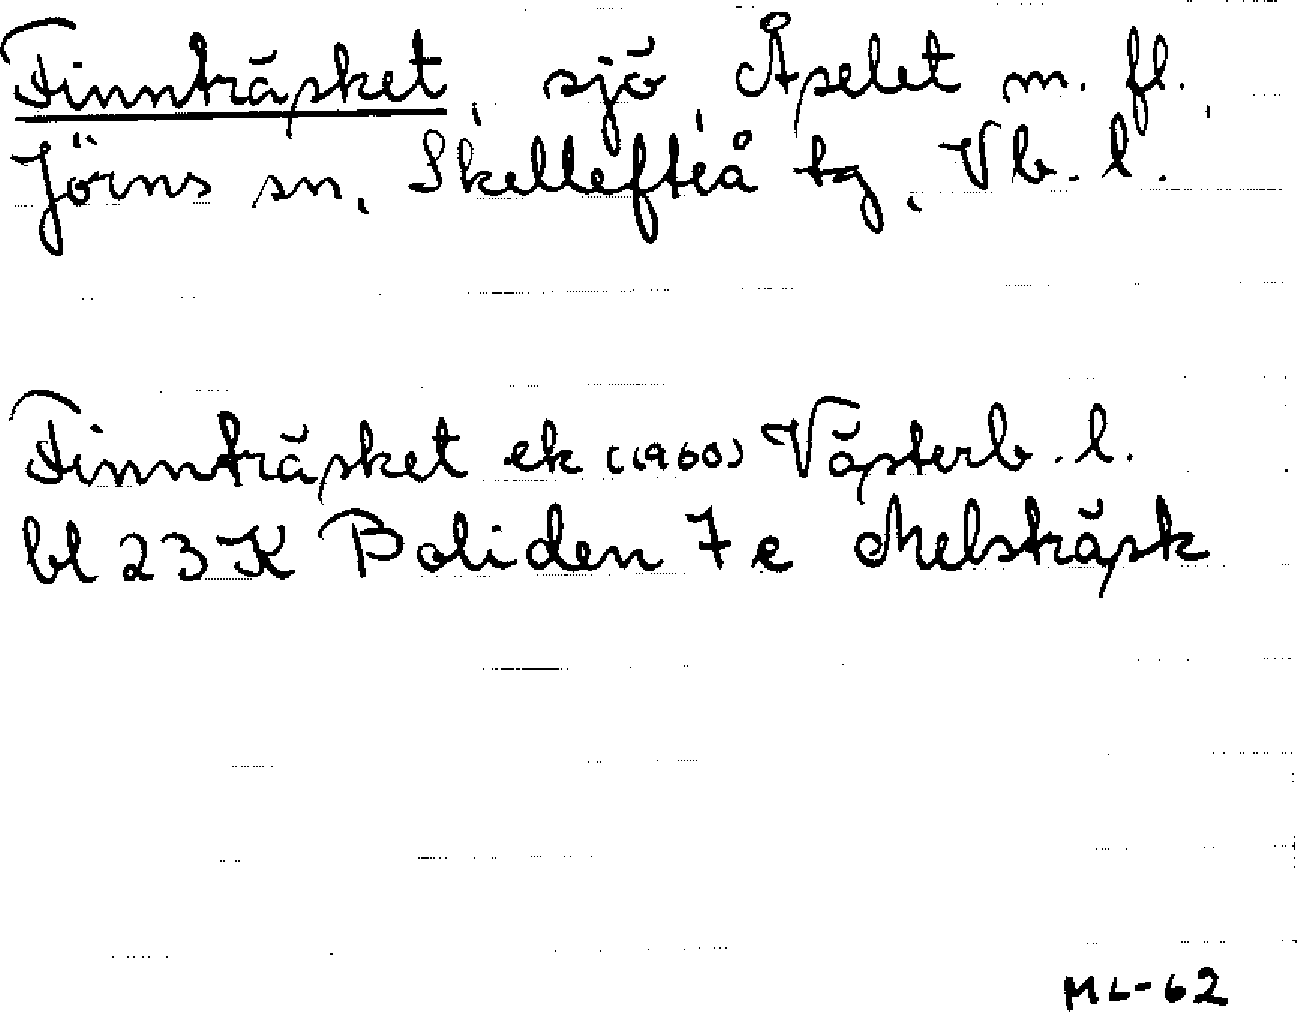 Finnträsket, sjö, Åselet m. fl.,
Jörns sn, Skellefteå tg, Vb. l.
Finnträsket ek (1960) Västerb. l.
bl 23 K Boliden 7 e Melsträsk
ML-62